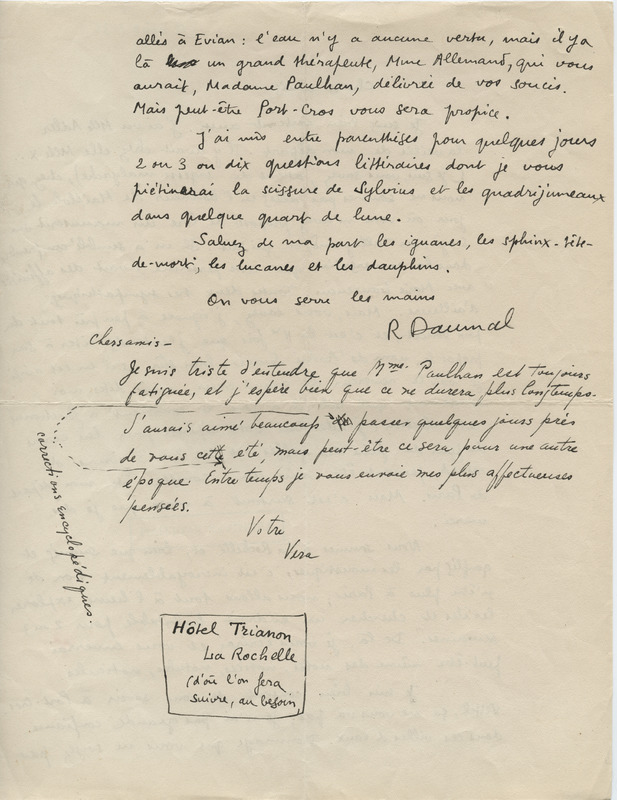 allés à Evian : l'eau n'y a aucune vertu, mais il y a
là un grand thérapeute, Mme Allemand, qui vous
aurait, Madame Paulhan, délivrée de vos soucis.
Mais peut-être Port-Cros vous sera propice.
J'ai mis entre parenthèses pour quelques jours
2 ou 3 ou dix questions littéraires dont je vous
piétinerai la scissure de Sylvius et les quadrijumeaux
dans quelque quart de lune.
Saluez de ma part les iguanes, les sphinx-tête-
de-mort, les lucanes et les dauphins.
On vous serre les mains
R Daumal
Chers amis -
Je suis triste d'entendre que Mme. Paulhan est toujours
fatiguée, et j'espère bien que ce ne durera plus longtemps.
J'aurais aimé beaucoup passer quelques jours près
de vous cette été, mais peut-être ce sera pour une autre
époque. Entre temps je vous envoie mes plus affectueuses
pensées.
Votre
Vera
corrections encyclopédiques.
Hôtel Trianon
La Rochelle
(d'où l'on fera
suivre, au besoin)